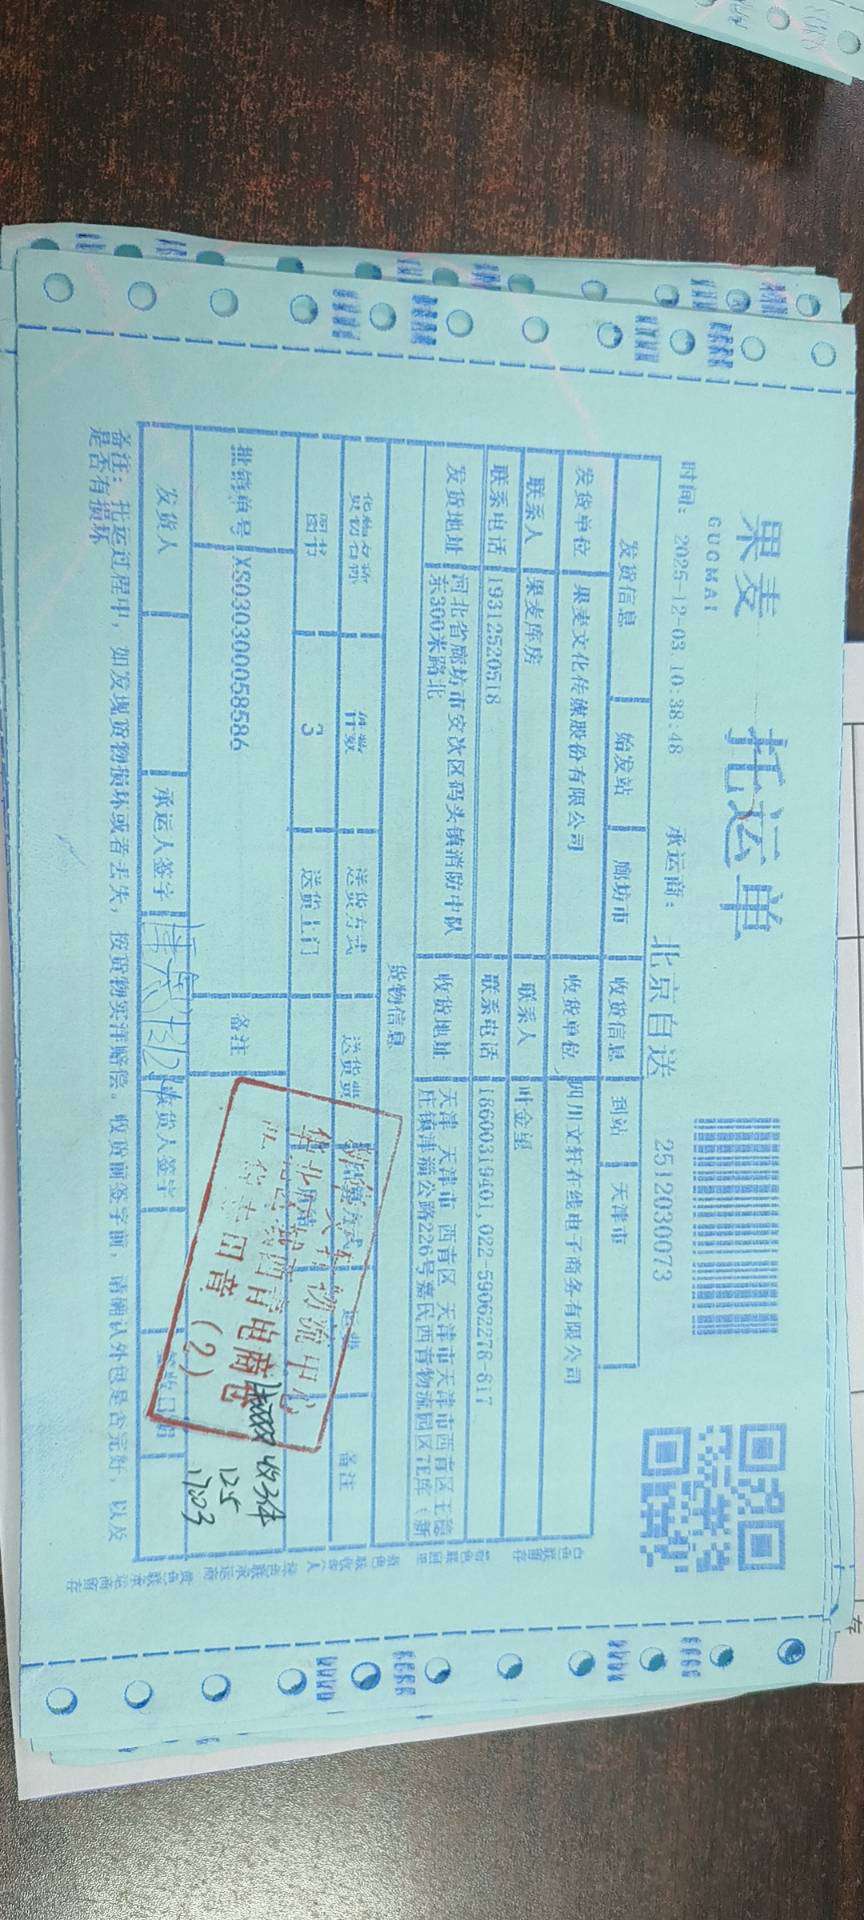 果麦
GUOMAI
托运单
时间: 2025-12-03 10:38:48 承运商: 北京自送 2512030073
发货信息 始发站 廊坊市 收货信息 到站 天津市
发货单位 果麦文化传媒股份有限公司 收货单位 四川文轩在线电子商务有限公司
联系人 果麦库房 联系人 叶金望
联系电话 19312520518 联系电话 18600319401,022-59062278-817
发货地址 河北省廊坊市安次区码头镇消防中队 收货地址 天津 天津市 西青区 天津市天津市西青区王稳
东300米路北 庄镇津涞公路226号嘉民西青物流园区
货物信息
货物名称 件数 送货方式 送货费 运费 备注
图书 3 送货上门
批销单号 XS030300058586 备注
发货人 承运人签字 收货人签字 签收日期
备注: 托运过程中, 如发现货物损坏或者丢失, 按货物实洋赔偿。收货前签字前, 请确认外包是否完好, 以及
是否有损坏
文轩物流中心
华北
电商仓
(2)
收3件
12.5